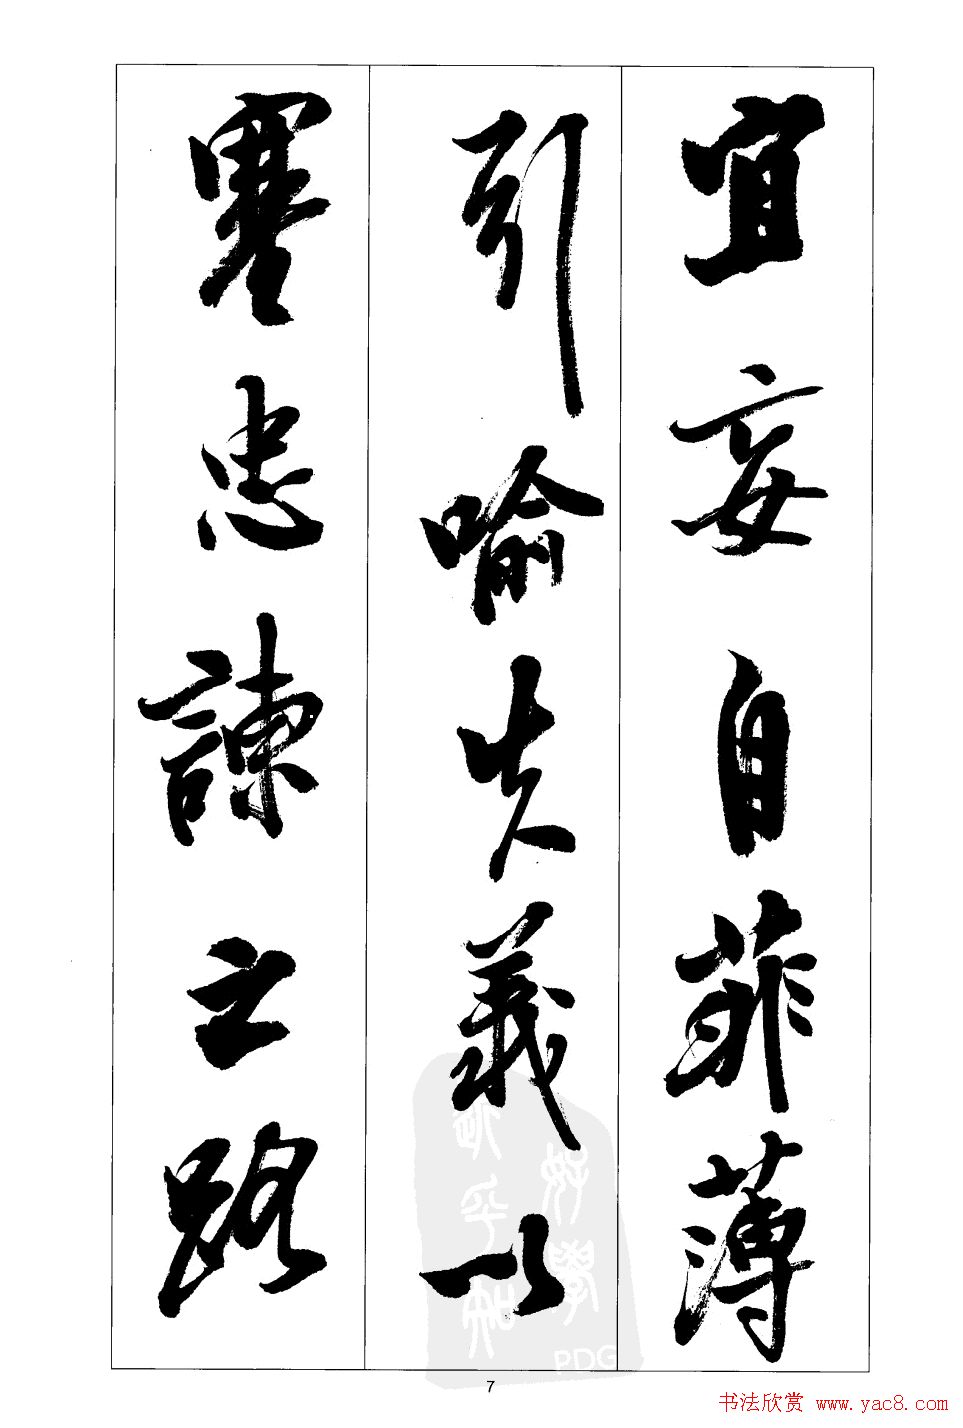 宜妄自菲薄
引喻失義以
塞忠諫之路
好學
PDG
7
书法欣赏 www.yac8.com